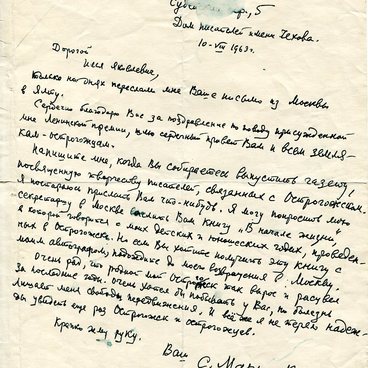 пр, 5
Дом писателей имени Чехова.
10-VII 1963 г.
Дорогой
Яковлевич,
только на днях переслали мне Ваше письмо из Москвы
в Ялту.
Сердечно благодарю Вас за поздравление по поводу присужденной
мне Ленинской премии, шлю сердечный привет Вам и всем земля-
кам-острогожцам.
Напишите мне, когда Вы собираетесь выпустить газету,
посвященную творчеству писателей, связанных с Острогожском.
Я постараюсь прислать Вам что-нибудь. Я могу попросить мою
секретаршу в Москве послать Вам книгу „В начале жизни",
в которой говорится о моих детских и юношеских годах, проведен-
ных в Острогожске. Но если Вы хотите получить эту книгу с
моим автографом, подождите до моего возвращения в Москву.
Очень рад, что родной мой Острогожск так вырос и расцвел
за последние годы. Очень хотел бы побывать у Вас, но болезнь
лишает меня свободы передвижения. И всё же я не теряю надеж-
ды увидеть еще раз Острогожск и острогожцев.
Крепко жму руку.
Ваш
С.